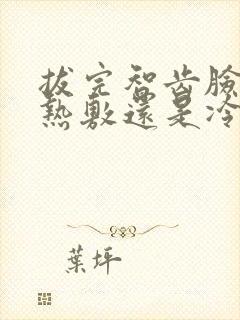 拔完智齒臉
熱敷還是冷
葉坪